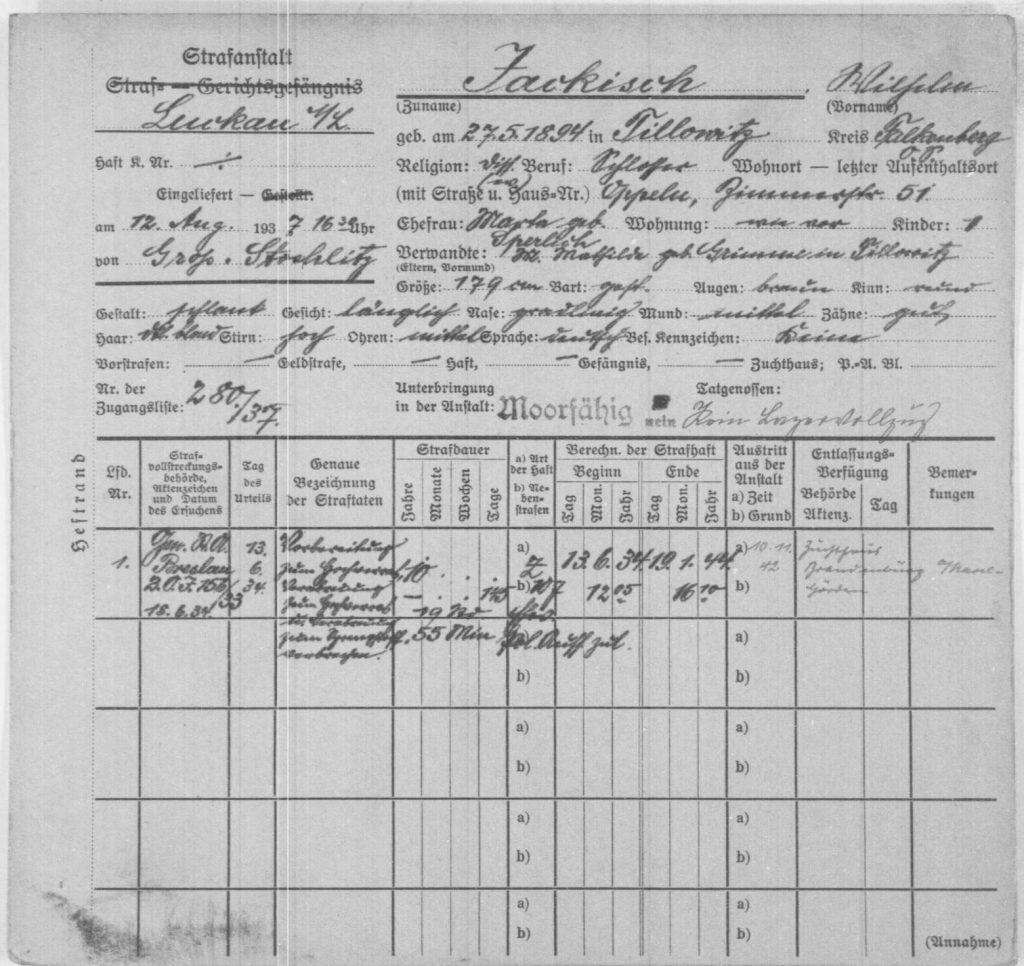 Strafanstalt
Straf- — Gerichtsgefängnis
Luckau N/L.
Haft K. Nr.
Eingeliefert — Gestellt:
am 12. Aug. 1937 16 30 Uhr
von Groß-Strehlitz
Jackisch, Wilhelm
(Zuname) (Vorname)
geb. am 27.5.1894 in Tillowitz Kreis Falkenberg
O/S.
Religion: diss. Beruf: Schlosser Wohnort — letzter Aufenthaltsort
(mit Straße u. Haus-Nr.) Oppeln, Zimmerstr. 51
Ehefrau: Marta geb. Sperlich Wohnung: wie vor Kinder: 1
Verwandte: Mathilde geb. Grimme in Tillowitz
(Eltern, Vormund)
Größe: 179 cm Bart: gest. Augen: braun Kinn: rund
Gestalt: schlank Gesicht: länglich Nase: gradlinig Mund: mittel Zähne: gut
Haar: Stirn: hoch Ohren: mittel Sprache: deutsch Bes. Kennzeichen: Keine
Vorstrafen: — Geldstrafe, — Haft, — Gefängnis, — Zuchthaus; P.-A. Bl.
Nr. der Zugangsliste: 280/37.
Unterbringung in der Anstalt: Moorfähig nein
Tatgenossen:
Kein Lagervollzug
Heftrand
Lfd. Nr.
Straf-
vollstreckungs-
behörde,
Aktenzeichen
und Datum
des Ersuchens
Tag
des
Urteils
Genaue
Bezeichnung
der Straftaten
Strafdauer
Jahre Monate Wochen Tage
a) Art
der Haft
b) Ne-
ben-
strafen
Berechn. der Strafhaft
Beginn Ende
Tag Mon. Jahr Tag Mon. Jahr
Austritt
aus der
Anstalt
a) Zeit
b) Grund
Entlassungs-
Verfügung
Behörde
Aktenz. Tag
Bemer-
kungen
1.
Gen. St. A.
Breslau
33
15.6.34
13.
6.
34.
Vorbereitung
zum Hochverrat,
Verabredung
zum Hochverrat
u. Verabredung
zum Sprengstoff-
verbrechen.
10 . . .
— . . 145
19 Std
55 Min
a) Z
b)
Pol. Aufs. zul.
13. 6. 34 19. 1. 44
12 05 16 10
a) 10. 11. 42
b)
Zuchthaus
Brandenburg
Görden
a)
b)
a)
b)
a)
b)
a)
b)
a)
b)
a)
b)
a)
b)
(Annahme)